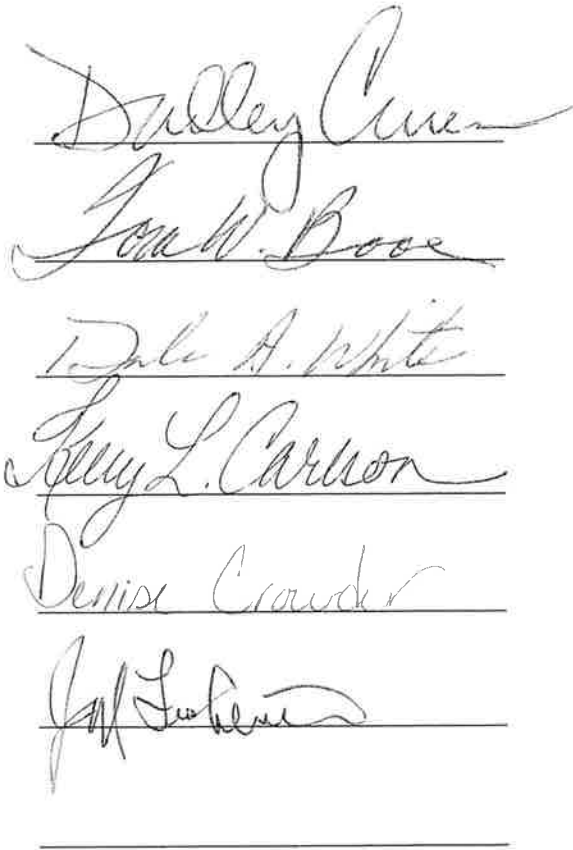 Dudley
Tom W. Booe
Dale A. White
Kerry L. Carlson
Denise Crowder